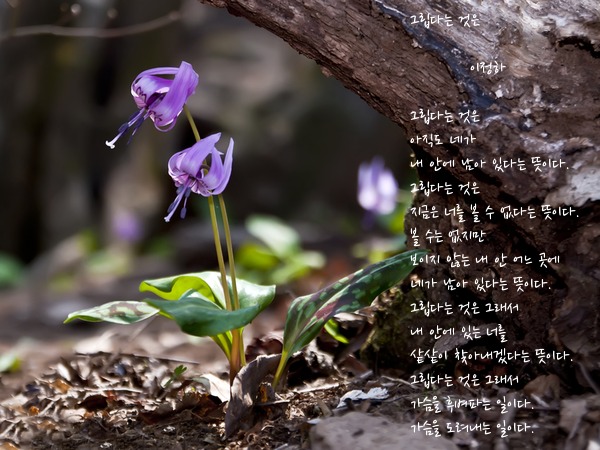 그립다는 것은
이정하
그립다는 것은
아직도 네가
내 안에 남아 있다는 뜻이다.
그립다는 것은
지금은 너를 볼 수 없다는 뜻이다.
볼 수는 없지만
보이지 않는 내 안 어느 곳에
네가 남아 있다는 뜻이다.
그립다는 것은 그래서
내 안에 있는 너를
샅샅이 찾아내겠다는 뜻이다.
그립다는 것은 그래서
가슴을 후벼파는 일이다.
가슴을 도려내는 일이다.